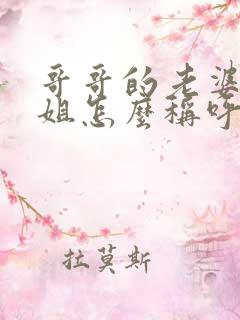 哥哥的老婆
姐怎麼稱呼
拉莫斯